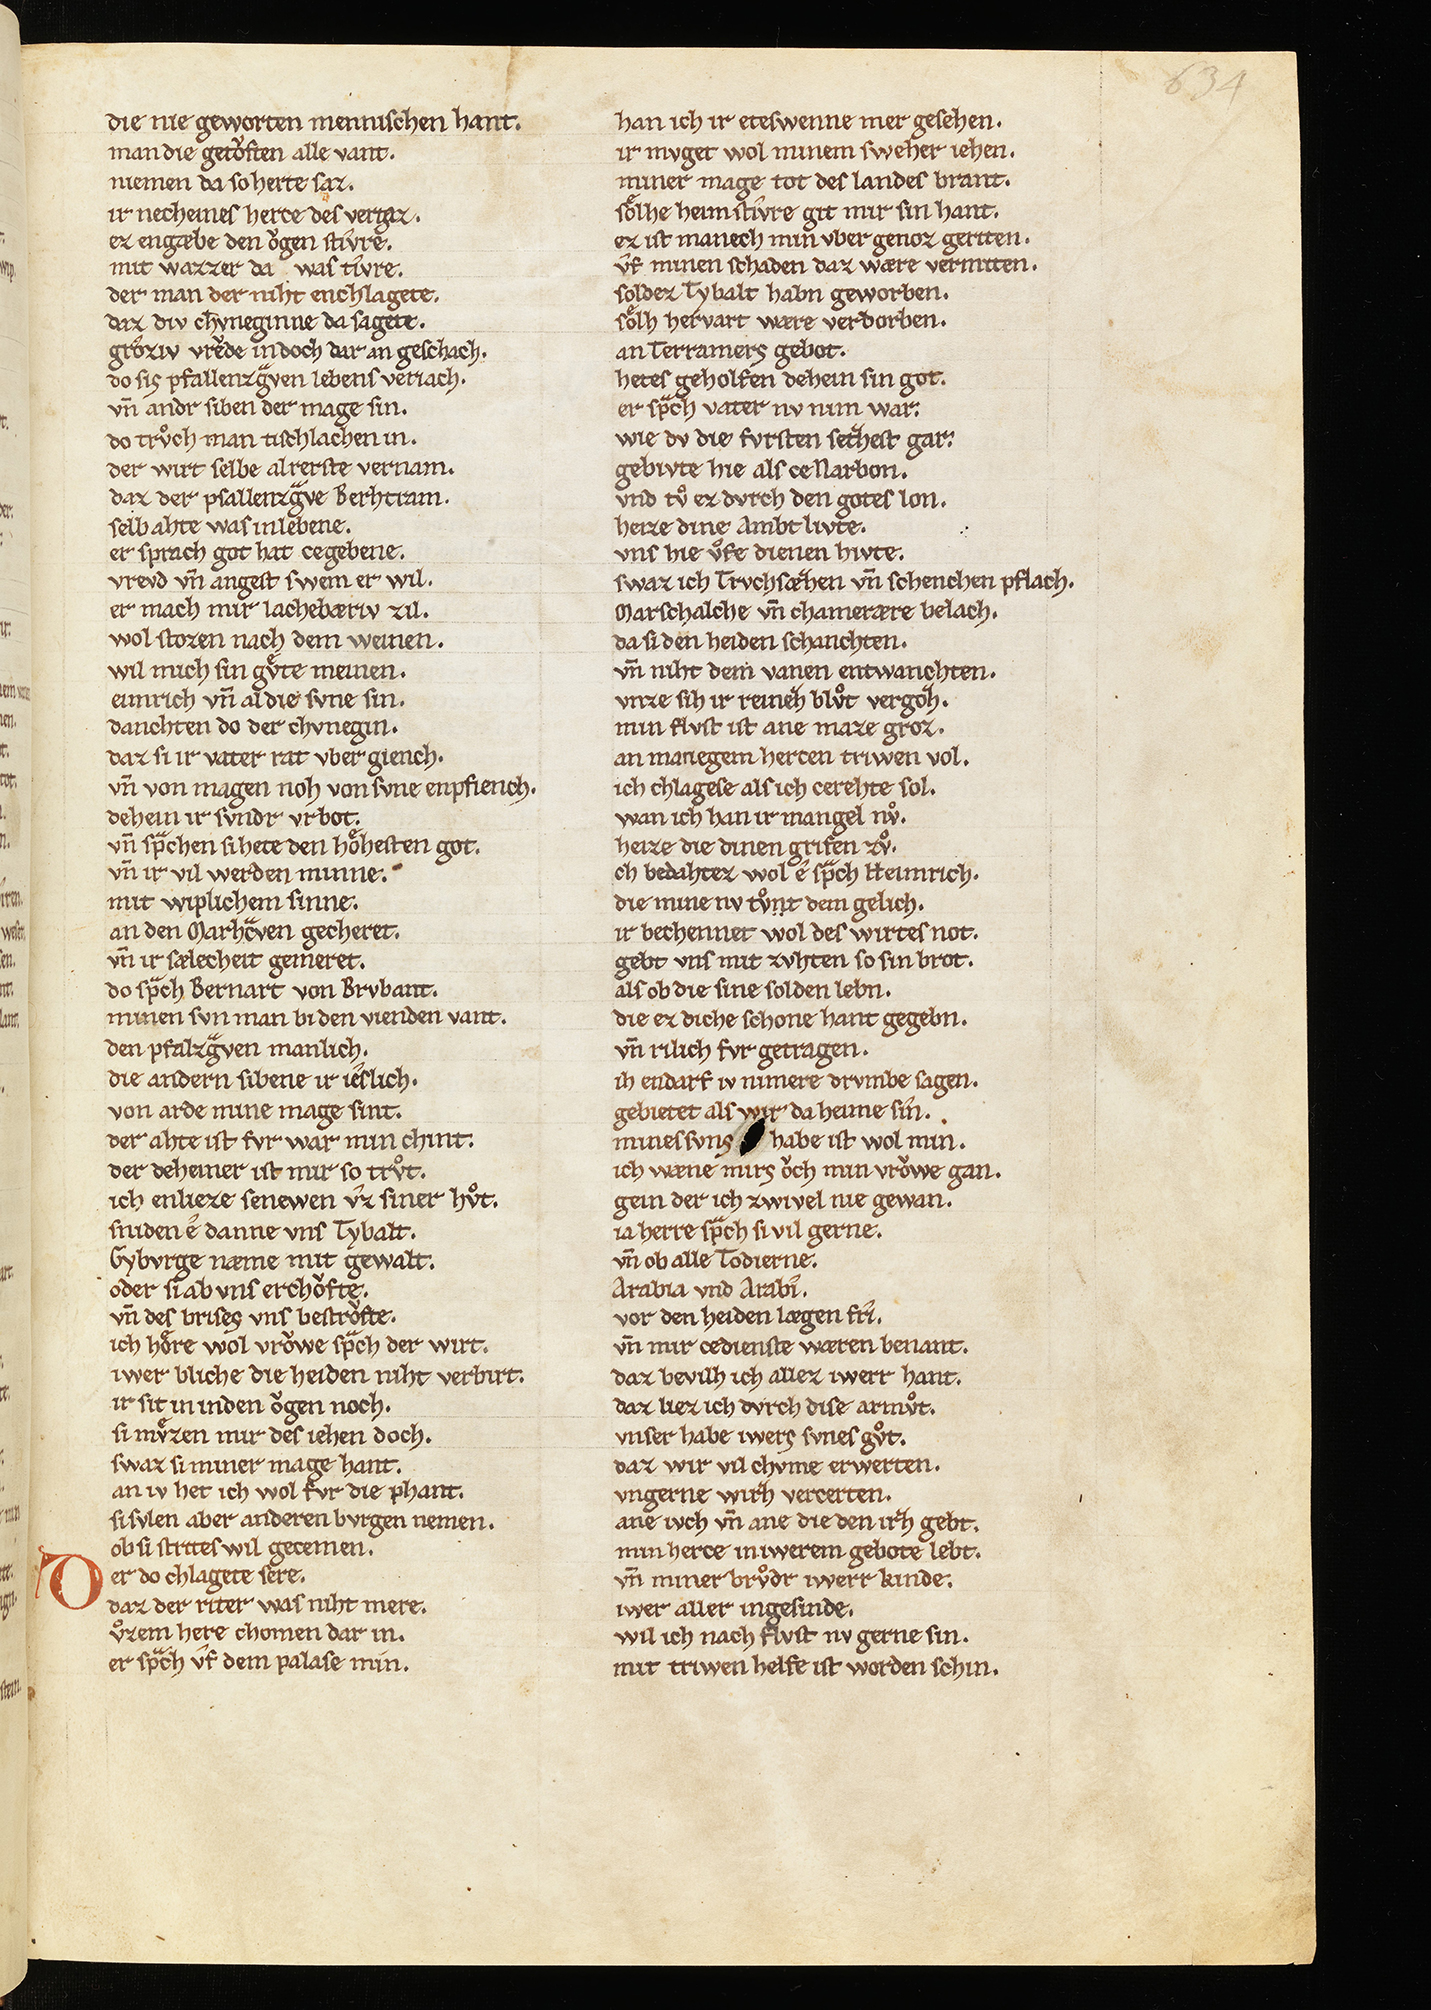 634
die nie geworten mennischen hant.
man die getoͮften alle vant.
niemen da so herte saz.
ir necheines herce des vergaz.
ez engæbe den oͮgen stivre.
mit wazzer da was tivre.
der man der niht enchlagete.
daz div chvneginne da sagete.
groziv vrevde in doch dar an geschach.
do sis pfallenzgͣven lebens veriach.
vn̄ andr siben der mage sin.
do trvͦch man tischlachen in.
der wirt selbe alrerste vernam.
daz der pfallenzgͣve Berhtram.
selb ahte was in lebene.
er sprach got hat cegebene.
vrevd vn̄ angest swem er wil.
er mach mir lachebæriv zil.
wol stozen nach dem weinen.
wil mich sin gvͤte meinen.
eimrich vn̄ al die svne sin.
danchten do der chvnegin.
daz si ir vater rat vber giench.
vn̄ von magen noh von svne enpfiench.
dehein ir svndr vrbot.
vn̄ spͣchen si hete den hoͤhesten got.
vn̄ ir vil werden minne.
mit wiplichem sinne.
an den Marhcͣven gecheret.
vn̄ ir sælecheit gemeret.
do spͣch Bernart von Brvbant.
minen svn man bi den vienden vant.
den pfalzgͣven manlich.
die andern sibene ir ieslich.
von arde mine mage sint.
der ahte ist fvr war min chint.
der deheiner ist mir so trvͦt.
ich enlieze senewen vz siner hvͦt.
sniden e danne vns Tybalt.
Gybvrge næme mit gewalt.
oder si ab vns erchoͮfte.
vn̄ des brises vns bestroͮfte.
ich hoͤre wol vroͮwe spͣch der wirt.
iwer bliche die heiden niht verbirt.
ir sit in inden oͮgen noch.
si mvͤzen mir des iehen doch.
swaz si miner mage hant.
an iv het ich wol fvr die phant.
si svlen aber anderen bvrgen nemen.
ob si strites wil gecemen.
Der do chlagete sere.
daz der riter was niht mere.
vͦzem here chomen dar in.
er spͣch vf dem palase min.
han ich ir eteswenne mer gesehen.
ir mvget wol minem sweher iehen.
miner mage tot des landes brant.
soͤlhe heimstivre git mir sin hant.
ez ist manech min vber genoz geriten.
vf minen schaden daz wære vermiten.
soldez Tybalt habn geworben.
soͤlh hervart wære verdorben.
an Terramers gebot.
hetes geholfen dehein sin got.
er spͣch vater nv nim war.
wie dv die fvrsten setzest gar.
gebivte hie als ce Narbon.
vnd tvͦ ez dvrch den gotes lon.
heize dine Ambtlivte.
vns hie vͦfe dienen hivte.
swaz ich Trvchsæhen vn̄ schenchen pflach.
Marschalche vn̄ chamerære belach.
da si den heiden schanchten.
vn̄ niht dem vanen entwanchten.
vnze sih ir reinez blvͦt vergoz.
min flvst ist ane maze groz.
an manegem hercen triwen vol.
ich chlagese als ich cerehte sol.
wan ich han ir mangel nvͦ.
heize die dinen grifen zvͦ.
ch bedahtez wol e spͣch Heimrich.
die mine nv tvͦnt dem gelich.
ir bechennet wol des wirtes not.
gebt vns mit zvhten so sin brot.
als ob die sine solden lebn.
die ez diche schone hant gegebn.
vn̄ rilich fvr getragen.
ih endarf iv nimere drvmbe sagen.
gebietet als wir da heime sin.
mines svns habe ist wol min.
ich wæne mirs oͮch min vroͮwe gan.
gein der ich zwivel nie gewan.
ia herre spͣch si vil gerne.
vn̄ ob alle Todierne.
Arabia vnd Arabi.
vor den heiden lægen fri.
vn̄ mir cedienste wæren benant.
daz bevilh ich allez iwerr hant.
daz liez ich dvrch dise armvͦt.
vnser habe iwers svnes gvͦt.
daz wir vil chvme erwerten.
vngerne wirz vercerten.
ane ivch vn̄ ane die den irz gebt.
min herce in iwerem gebote lebt.
vn̄ miner brvͦdr iwerr kinde.
iwer aller ingesinde.
wil ich nach flvst nv gerne sin.
mit triwen helfe ist worden schin.